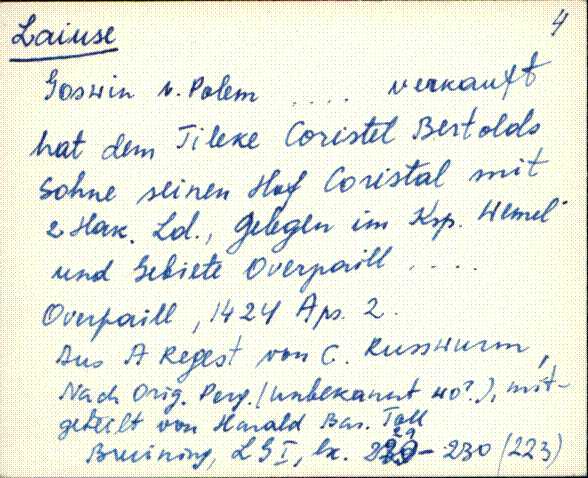 4
Laiuse
Goswin v. Polem .... verkauft
hat dem Tileke Coristel Bertolds
Sohne seinen Hof Coristal mit
2 Hak. Ld., gelegen im Ksp. Wemel
und Gebiete Overpaill ....
Overpaill, 1424 Apr. 2.
Aus A Regest von C. Russwurm,
Nach Orig. Perg. (unbekannt wo?), mit-
geteilt von Harald Bar. Toll
Bruining, LG I, lk. 229 - 230 (223)